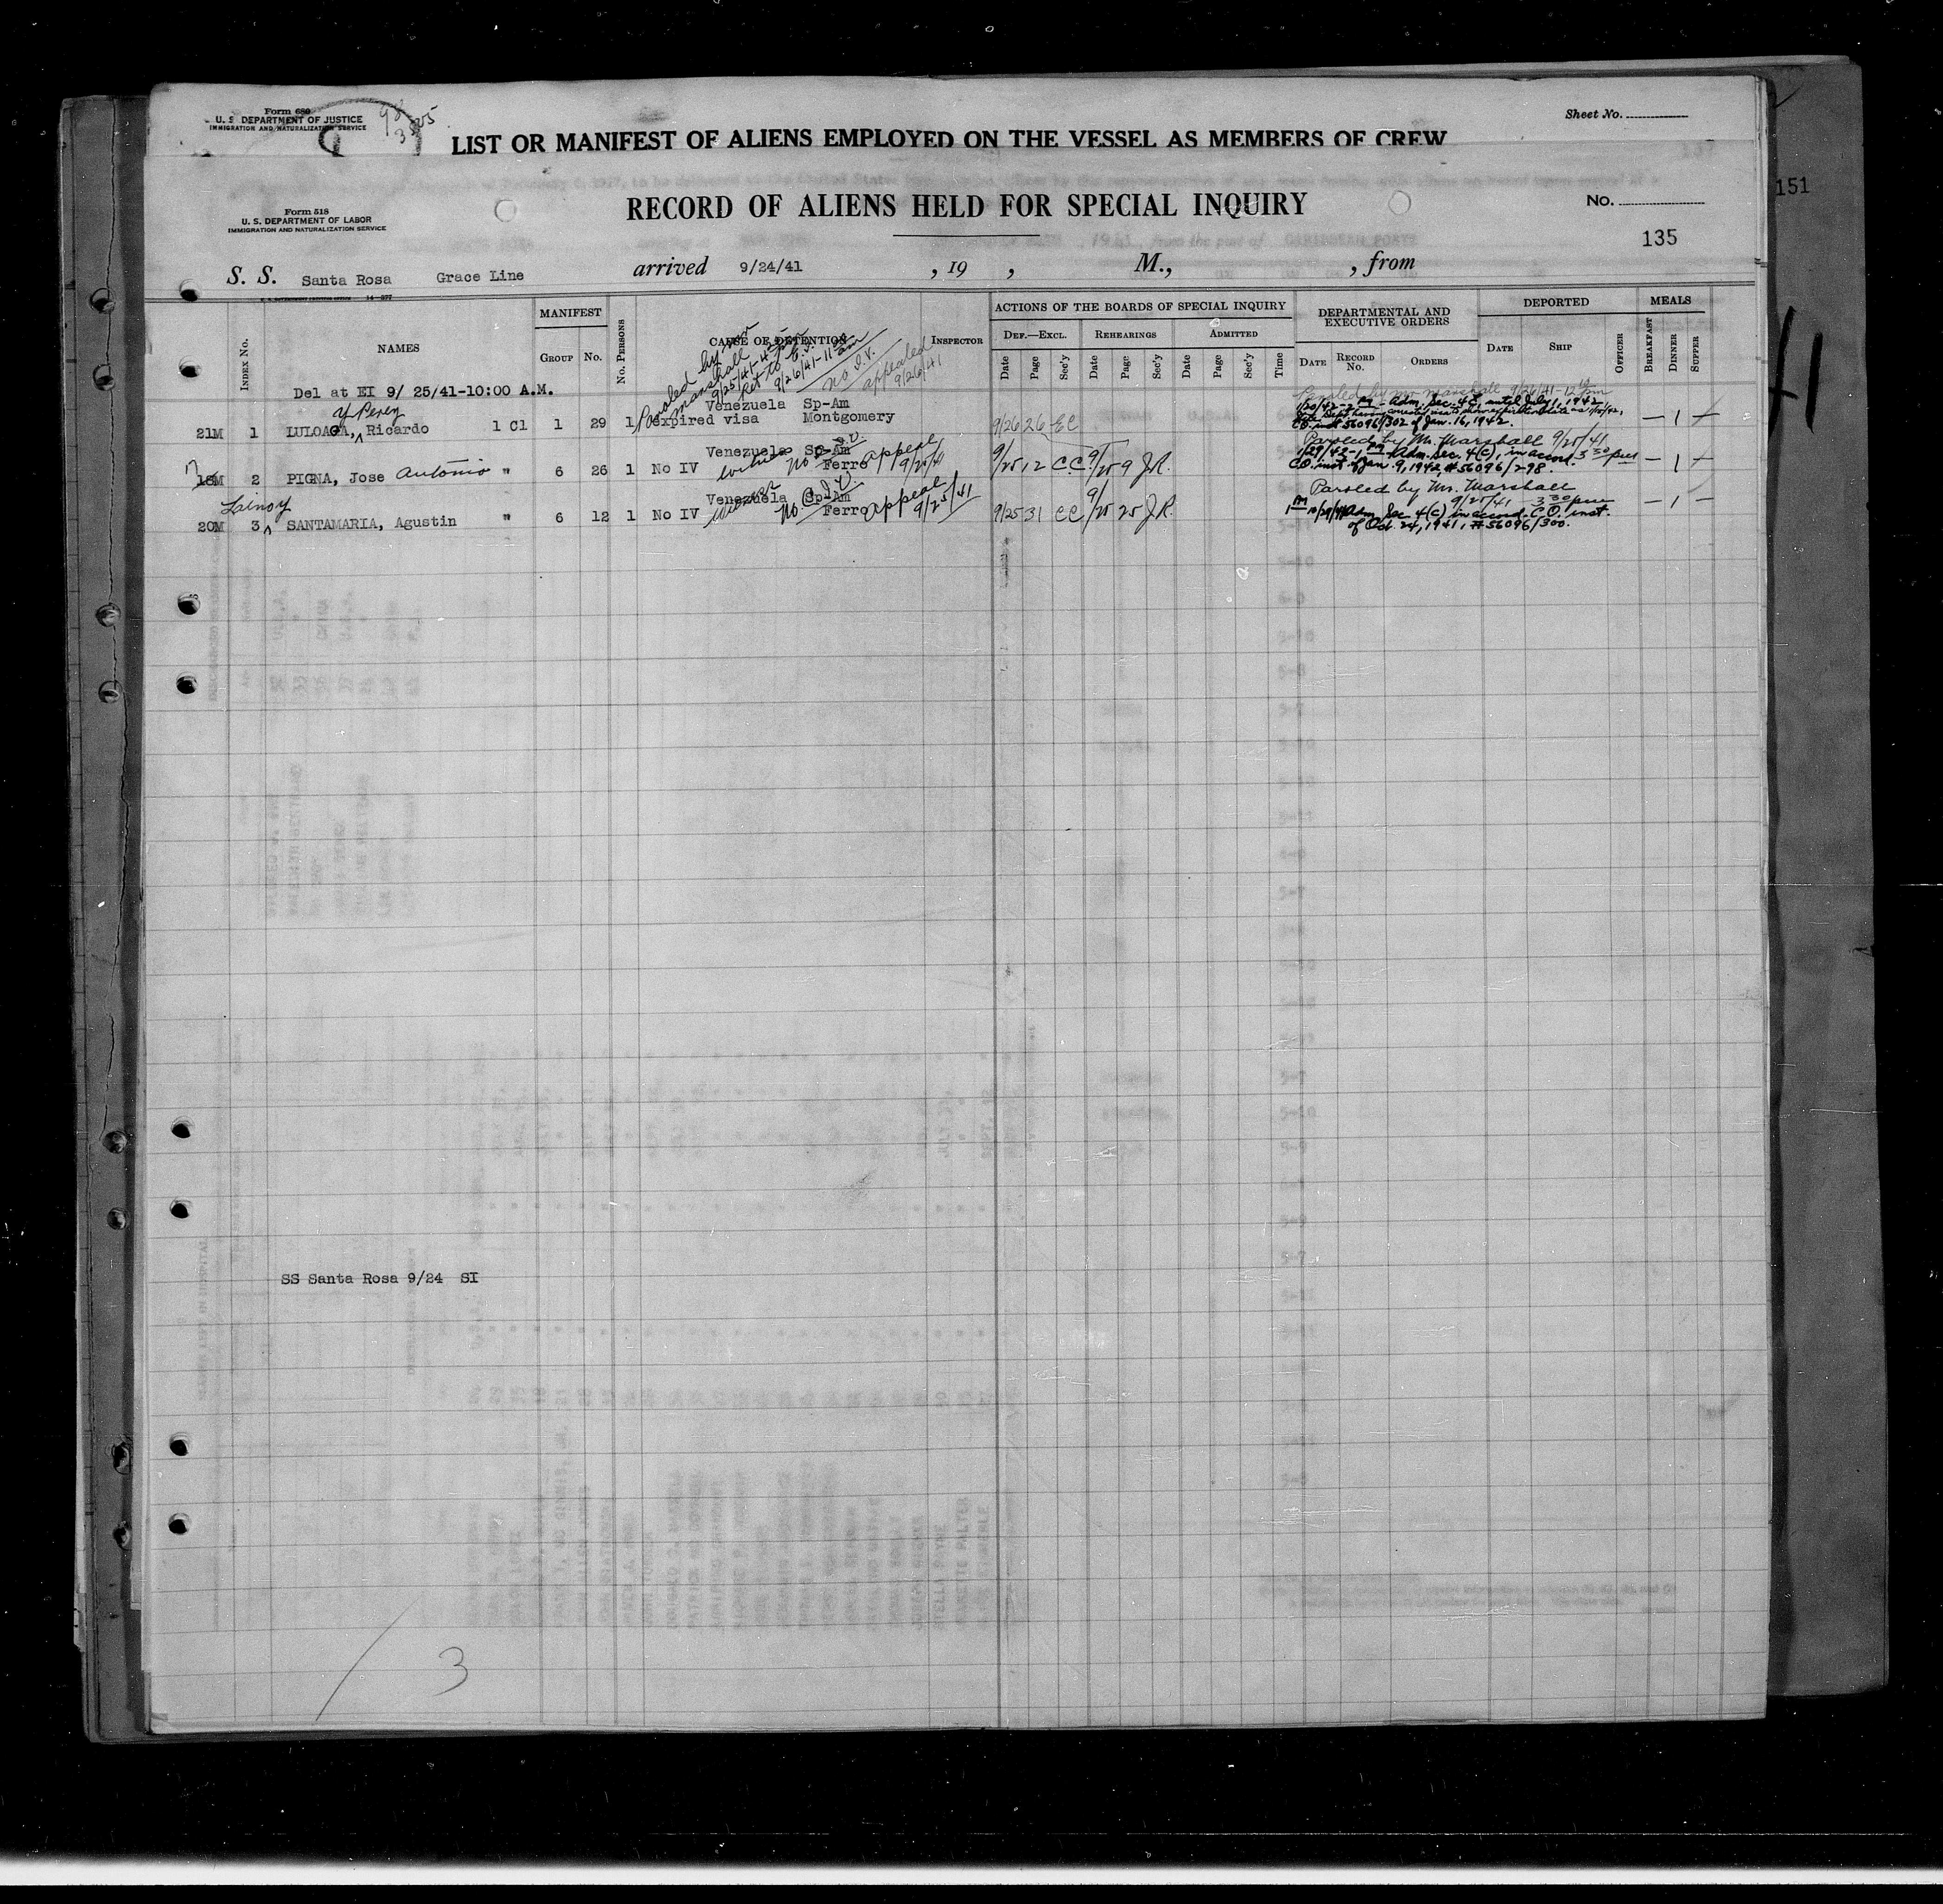 Form 680
U. S. DEPARTMENT OF JUSTICE
IMMIGRATION AND NATURALIZATION SERVICE
Sheet No.
LIST OR MANIFEST OF ALIENS EMPLOYED ON THE VESSEL AS MEMBERS OF CREW
151
Form 518
U. S. DEPARTMENT OF LABOR
IMMIGRATION AND NATURALIZATION SERVICE
RECORD OF ALIENS HELD FOR SPECIAL INQUIRY
No.
135
S. S. Santa Rosa Grace Line arrived 9/24/41 , 19 , M., , from
Index No. NAMES MANIFEST GROUP No. No. PERSONS CAUSE OF DETENTION INSPECTOR
ACTIONS OF THE BOARDS OF SPECIAL INQUIRY
DEF.—EXCL. REHEARINGS ADMITTED
Date Page Sec'y Date Page Sec'y Date Page Sec'y Time
DEPARTMENTAL AND EXECUTIVE ORDERS
DATE RECORD No. ORDERS
DEPORTED
DATE SHIP OFFICER
MEALS
BREAKFAST DINNER SUPPER
Del at EI 9/ 25/41-10:00 A.M.
Paroled by Mr
Marshall
9/25/41-4
Ret to E.I.
9/26/41-11
am
no I.V.
appealed
9/26/41
Paroled by Mr Marshall 9/26/41-12 pm
y Perez
Venezuela Sp-Am
21M 1 LULOAGA, Ricardo 1 Cl 1 29 1 expired visa Montgomery 9/26 26 EC
1/20/42-2 PM-Adm. Sec. 4C until July 1, 1942,
C.O. inst 56096/302 of Jan. 16, 1942.
— 1 —
Venezuela Sp-Am
18M 2 PIGNA, Jose Antonio " 6 26 1 No IV Ferro Appeal 9/25/41 9/25 12 CC 9/25 9 J.R.
Paroled by Mr. Marshall 9/25/41
3 30 pm
1/29/42-1 PM Adm. Sec. 4(C), in accord.
C.O. inst. of Jan. 9, 1942, #56096/298.
— 1 —
Venezuela Sp-Am
20M 3 SANTAMARIA, Agustin " 6 12 1 No IV witness Ferro Appeal 9/25/41 9/25 31 CC 9/25 25 J.R.
Paroled by Mr. Marshall
9/25/41 3 30 pm
Adm Sec 4(C) in accord. C.O. inst.
of Oct. 24, 1941, #56096/300.
— 1 —
SS Santa Rosa 9/24 SI
3